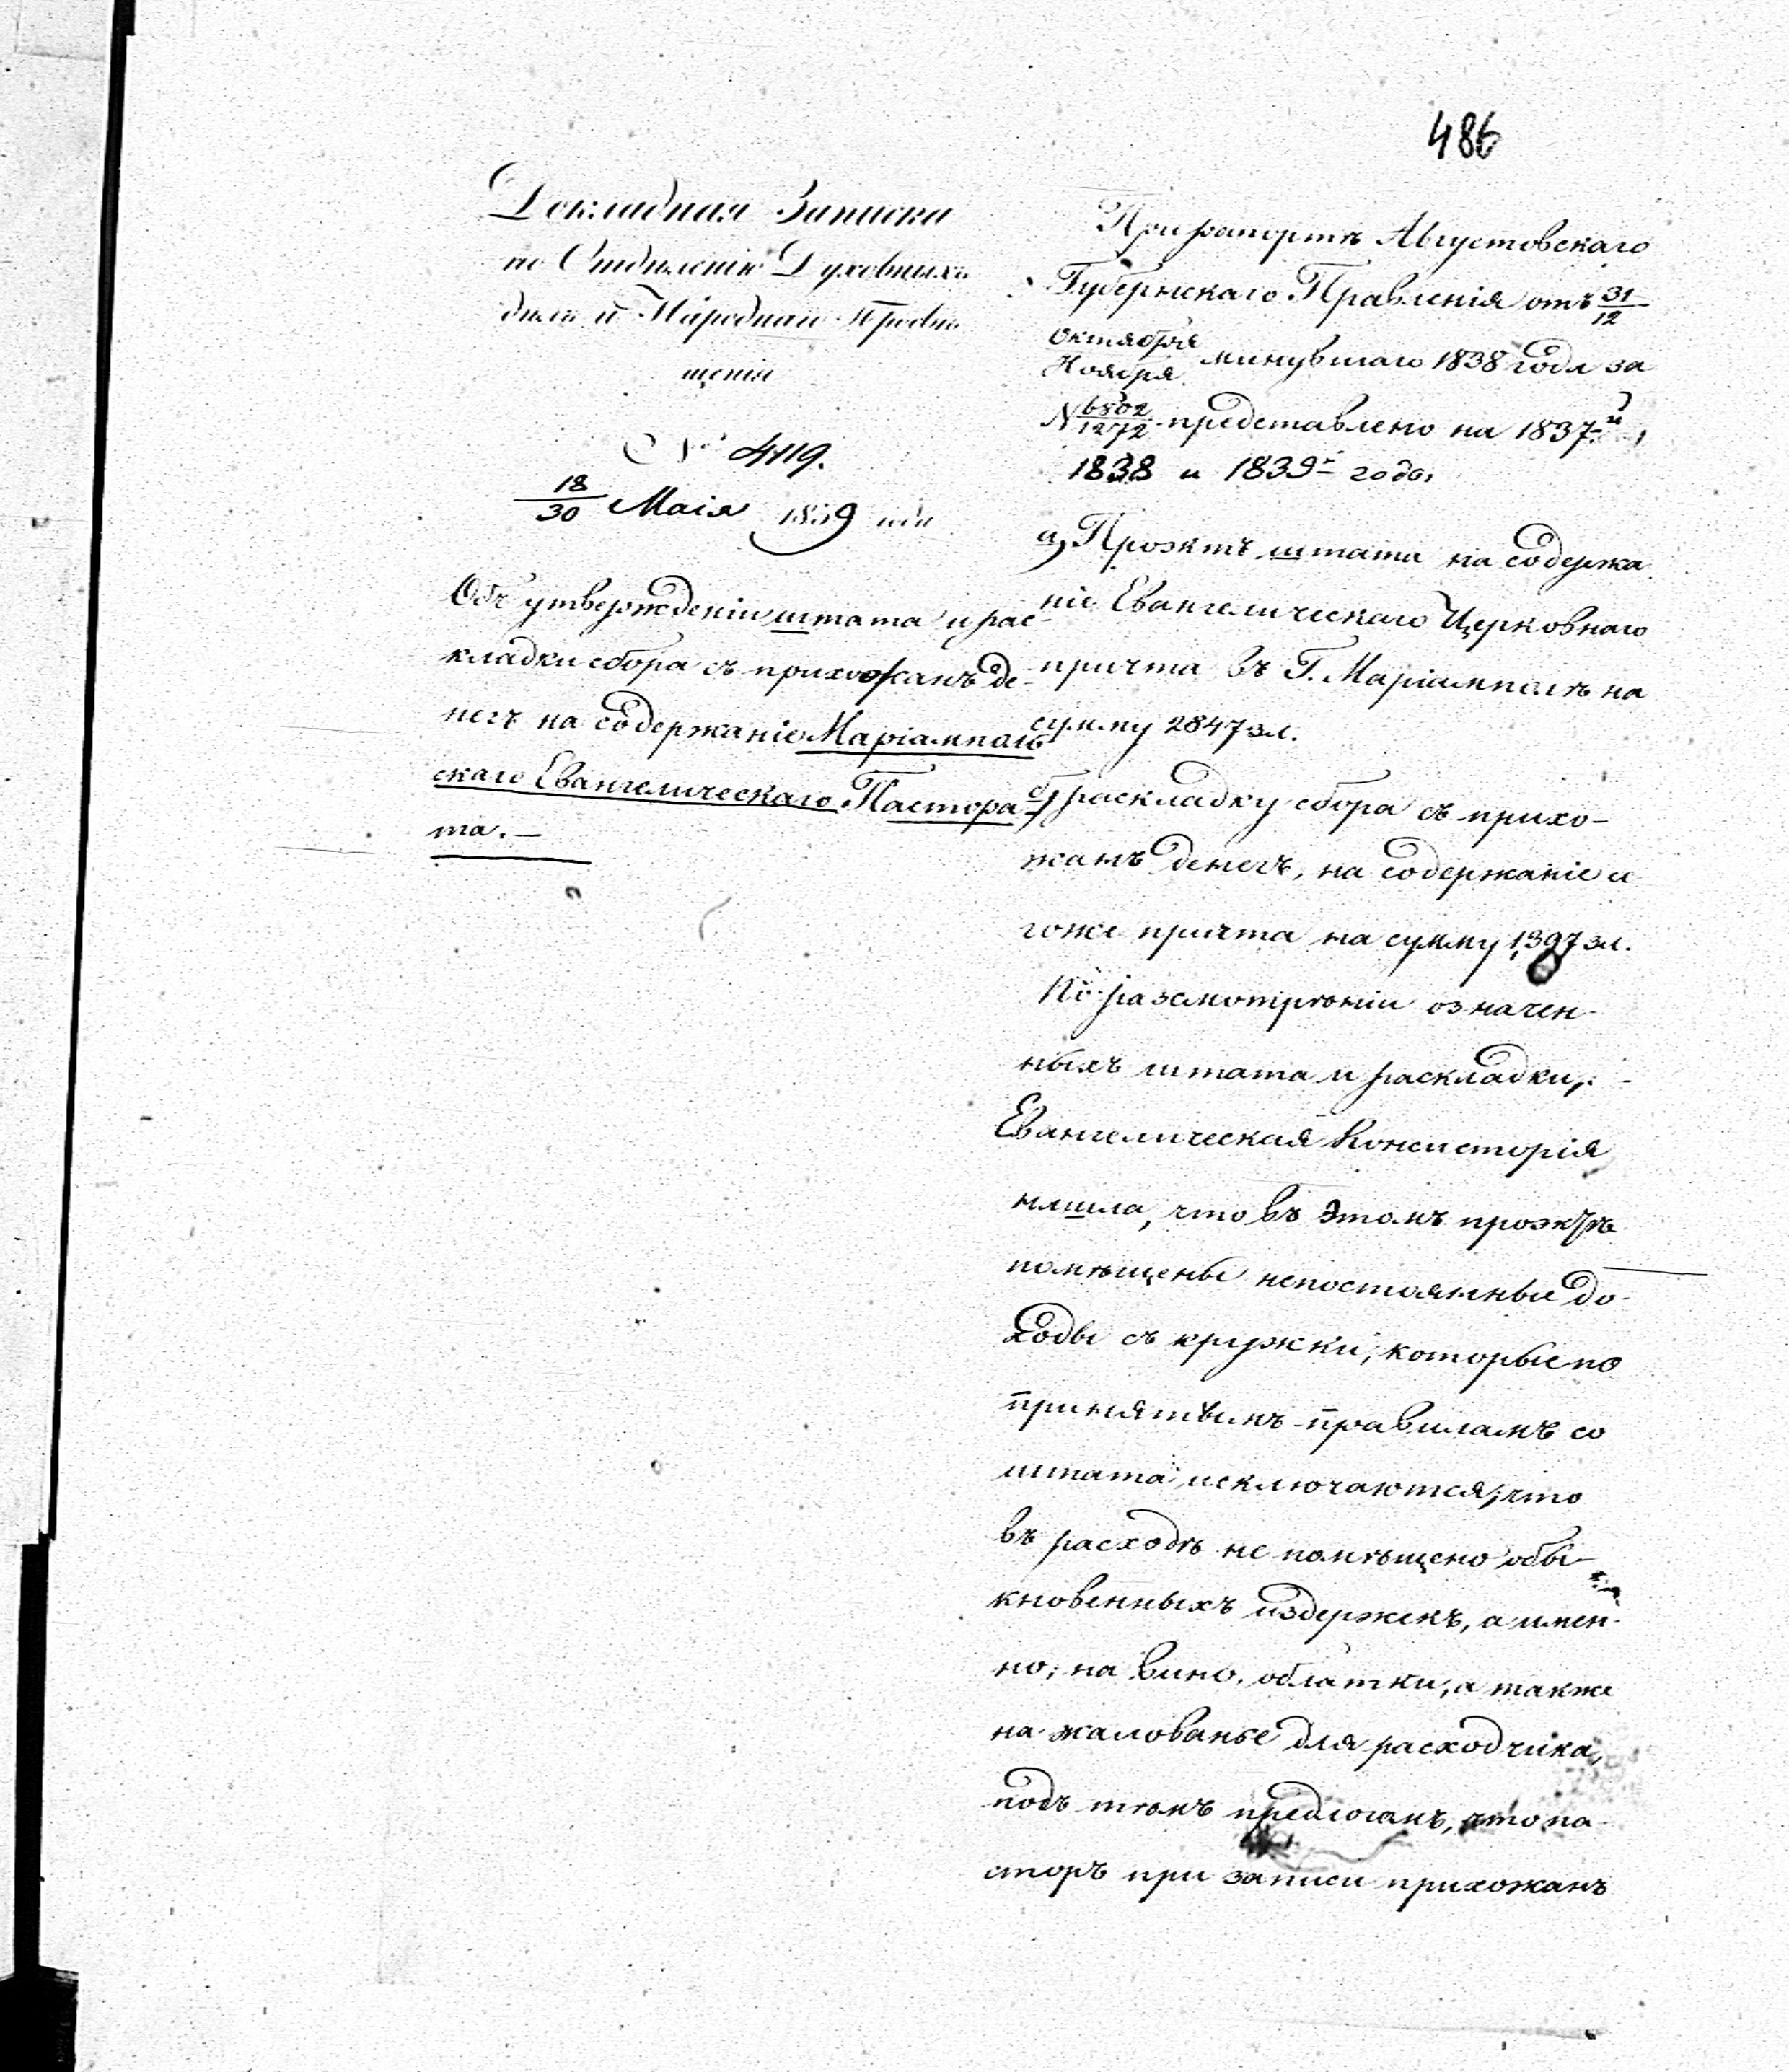 486
Докладная Записка
по Отдѣленію Духовныхъ
дѣлъ и Народнаго Просвѣ
щенія
№ 4119.
18/30 Маія 1839 года
Объ утвержденіи штата и рас-
кладки сбора съ прихожанъ де-
негъ на содержаніе Маріампаль
скаго Евангелическаго Пастора-
та.—
При рапортѣ Августовскаго
Губернскаго Правленія отъ 31/12
Октября/Ноября минувшаго 1838 года за
N 6802/1272 представлено на 1837й,
1838 и 1839й годы
а) Проэктъ штата на содержа
ніе Евангелическаго Церковнаго
причта въ Г. Маріамполѣ на
сумму 2847 зл.
б) раскладку сбора съ прихо-
жанъ денегъ, на содержаніе се
гоже причта на сумму 1397 зл.
По разсмотрѣніи означен-
ныхъ штата и раскладки,
Евангелическая Консисторія
нашла, что въ этомъ проэктѣ
помѣщены непостоянные до-
ходы съ кружки, которые по
принятымъ правиламъ со
штата исключаются, что
въ расходѣ не помѣщено обы-
кновенныхъ издержекъ, а имен-
но: на вино, облатки, а также
на жалованье для расходчика,
подъ тѣмъ предлогомъ, что па
сторъ при записи прихожанъ